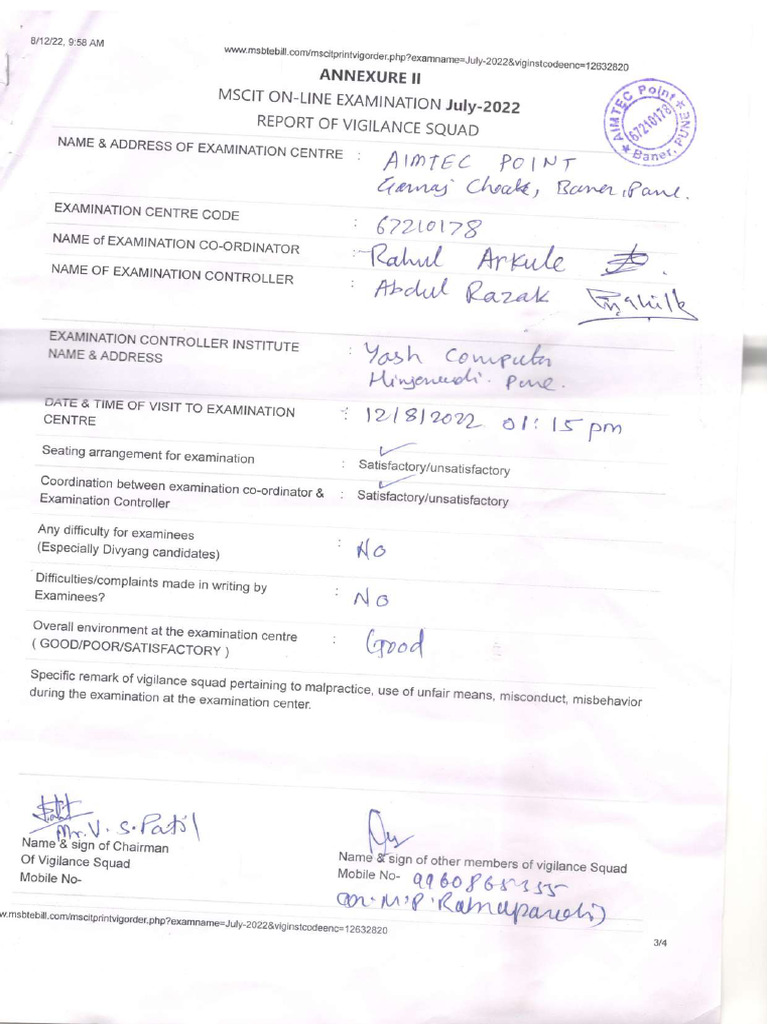 8/12/22, 9:58 AM
www.msbtebill.com/mscitprintvigorder.php?examname=July-2022&viginstcodeenc=12632820
ANNEXURE II
MSCIT ON-LINE EXAMINATION July-2022
REPORT OF VIGILANCE SQUAD
AIMTEC Point
67210178
Baner, PUNE
NAME & ADDRESS OF EXAMINATION CENTRE : AIMTEC POINT
Baner, Pune.
EXAMINATION CENTRE CODE : 67210178
NAME of EXAMINATION CO-ORDINATOR : Rahul Arkule
NAME OF EXAMINATION CONTROLLER : Abdul Razak
EXAMINATION CONTROLLER INSTITUTE : Yash Computer
NAME & ADDRESS Pune.
DATE & TIME OF VISIT TO EXAMINATION : 12/8/2022 01:15 pm
CENTRE
Seating arrangement for examination : Satisfactory/unsatisfactory
Coordination between examination co-ordinator & : Satisfactory/unsatisfactory
Examination Controller
Any difficulty for examinees : NO
(Especially Divyang candidates)
Difficulties/complaints made in writing by : NO
Examinees?
Overall environment at the examination centre : Good
( GOOD/POOR/SATISFACTORY )
Specific remark of vigilance squad pertaining to malpractice, use of unfair means, misconduct, misbehavior
during the examination at the examination center.
Mr. V. S. Patil
Name & sign of Chairman
Of Vigilance Squad
Mobile No-
Name & sign of other members of vigilance Squad
Mobile No- 9960865355
w.msbtebill.com/mscitprintvigorder.php?examname=July-2022&viginstcodeenc=12632820
3/4